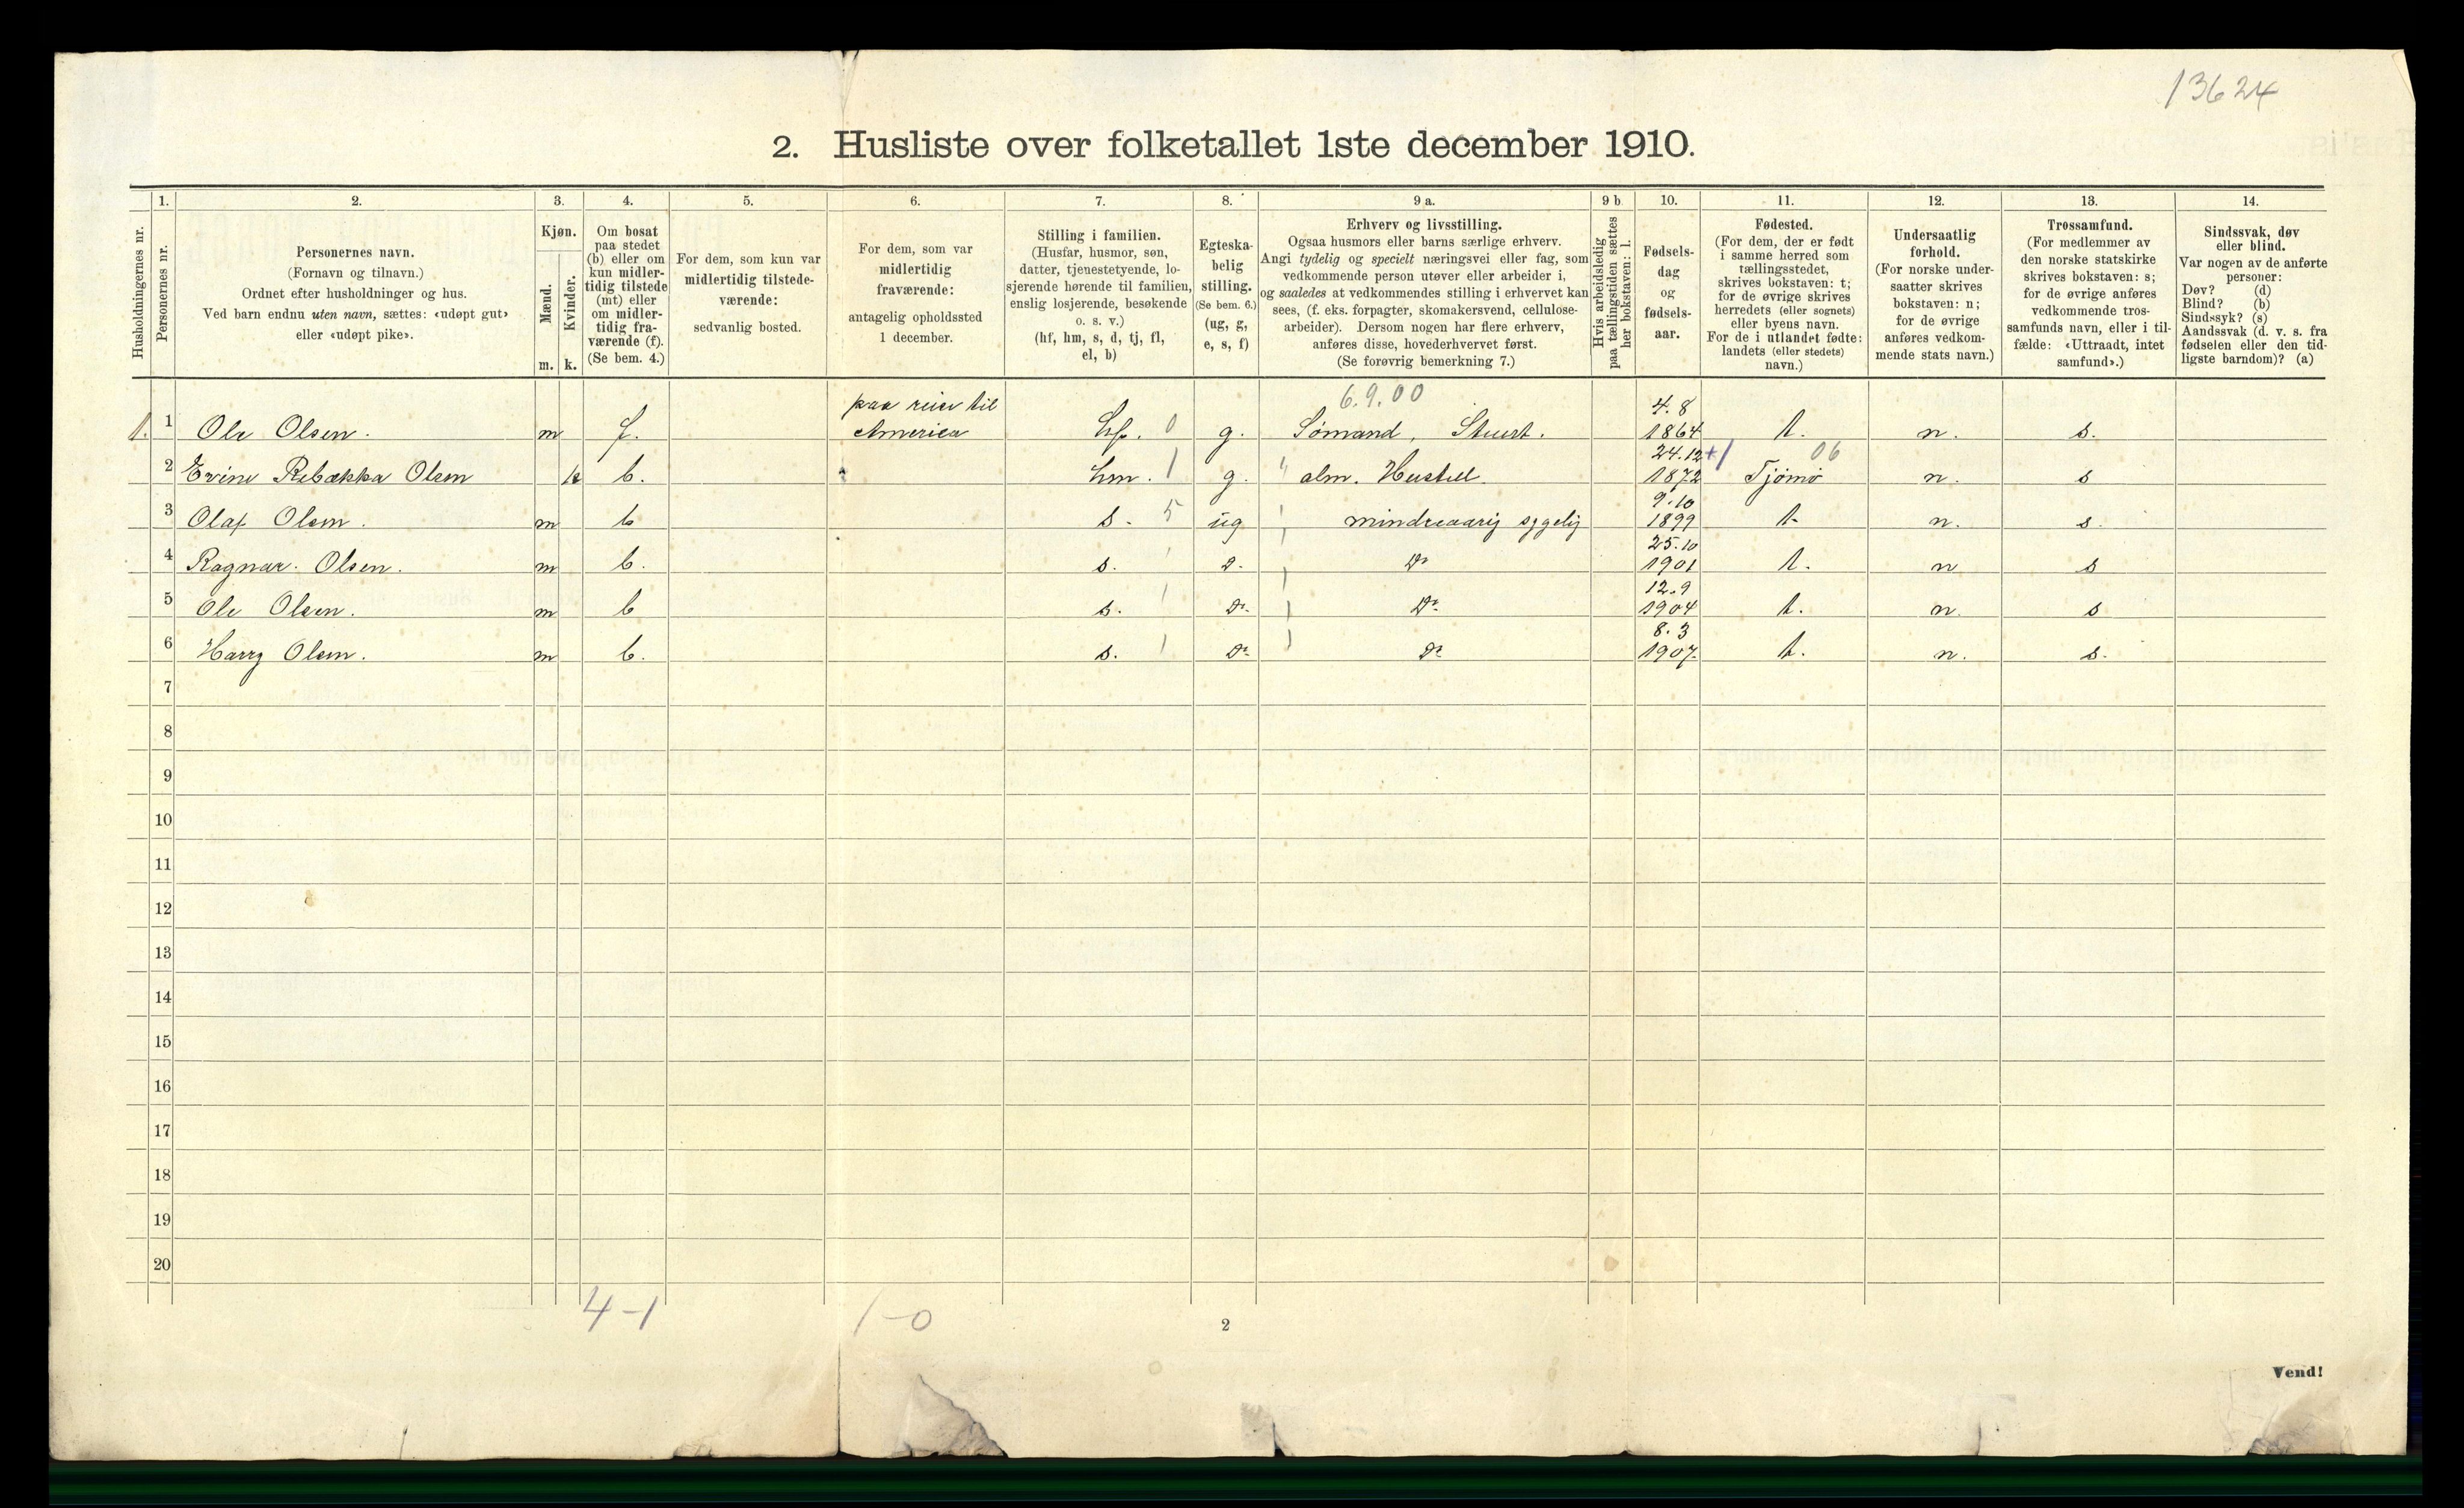 13624
2. Husliste over folketallet 1ste december 1910.
1. 2. 3. 4. 5. 6. 7. 8. 9 a. 9 b. 10. 11. 12. 13. 14.
Husholdningernes nr.
Personernes nr.
Personernes navn.
(Fornavn og tilnavn.)
Ordnet efter husholdninger og hus.
Ved barn endnu uten navn, sættes: «udøpt gut»
eller «udøpt pike».
Kjøn.
Mænd.
Kvinder.
m. k.
Om bosat
paa stedet
(b) eller om
kun midler-
tidig tilstede
(mt) eller
om midler-
tidig fra-
værende (f).
(Se bem. 4.)
For dem, som kun var
midlertidig tilstede-
værende:
sedvanlig bosted.
For dem, som var
midlertidig
fraværende:
antagelig opholdssted
1 december.
Stilling i familien.
(Husfar, husmor, søn,
datter, tjenestetyende, lo-
sjerende hørende til familien,
enslig losjerende, besøkende
o. s. v.)
(hf, hm, s, d, tj, fl,
el, b)
Egteska-
belig
stilling.
(Se bem. 6.)
(ug, g,
e, s, f)
Erhverv og livsstilling.
Ogsaa husmors eller barns særlige erhverv.
Angi tydelig og specielt næringsvei eller fag, som
vedkommende person utøver eller arbeider i,
og saaledes at vedkommendes stilling i erhvervet kan
sees, (f. eks. forpagter, skomakersvend, cellulose-
arbeider). Dersom nogen har flere erhverv,
anføres disse, hovederhvervet først.
(Se forøvrig bemerkning 7.)
Hvis arbeidsledig
paa tællingstiden sættes
her bokstaven: l.
Fødsels-
dag
og
fødsels-
aar.
Fødested.
(For dem, der er født
i samme herred som
tællingsstedet,
skrives bokstaven: t;
for de øvrige skrives
herredets (eller sognets)
eller byens navn.
For de i utlandet fødte:
landets (eller stedets)
navn.)
Undersaatlig
forhold.
(For norske under-
saatter skrives
bokstaven: n;
for de øvrige
anføres vedkom-
mende stats navn.)
Trossamfund.
(For medlemmer av
den norske statskirke
skrives bokstaven: s;
for de øvrige anføres
vedkommende tros-
samfunds navn, eller i til-
fælde: «Uttraadt, intet
samfund».)
Sindssvak, døv
eller blind.
Var nogen av de anførte
personer:
Døv? (d)
Blind? (b)
Sindssyk? (s)
Aandssvak (d. v. s. fra
fødselen eller den tid-
ligste barndom)? (a)
til 6.9.00 4.8
1. 1 Ole Olsen. m f. America hf. 0 g. Sømand, 1864 t. n. s.
24.12 06
2 Olsen k b. hm. 1 g. alm. 1872 Tjømø n. s
9.10
3 Olaf Olsen. m b s. 5 ug mindreaarig sygelig 1899 t. n. s.
25.10
4 Ragnar. Olsen. m b. s. Do 1901 t. n s
12.9
5 Ole Olsen. m b s. Do. Do. 1904 t. n. s
8.3
6 Harry Olsen. m b. s. 1 Do. Do 1907. t. n. s.
7
8
9
10
11
12
13
14
15
16
17
18
19
20
4-1 1-0
2
Vend!